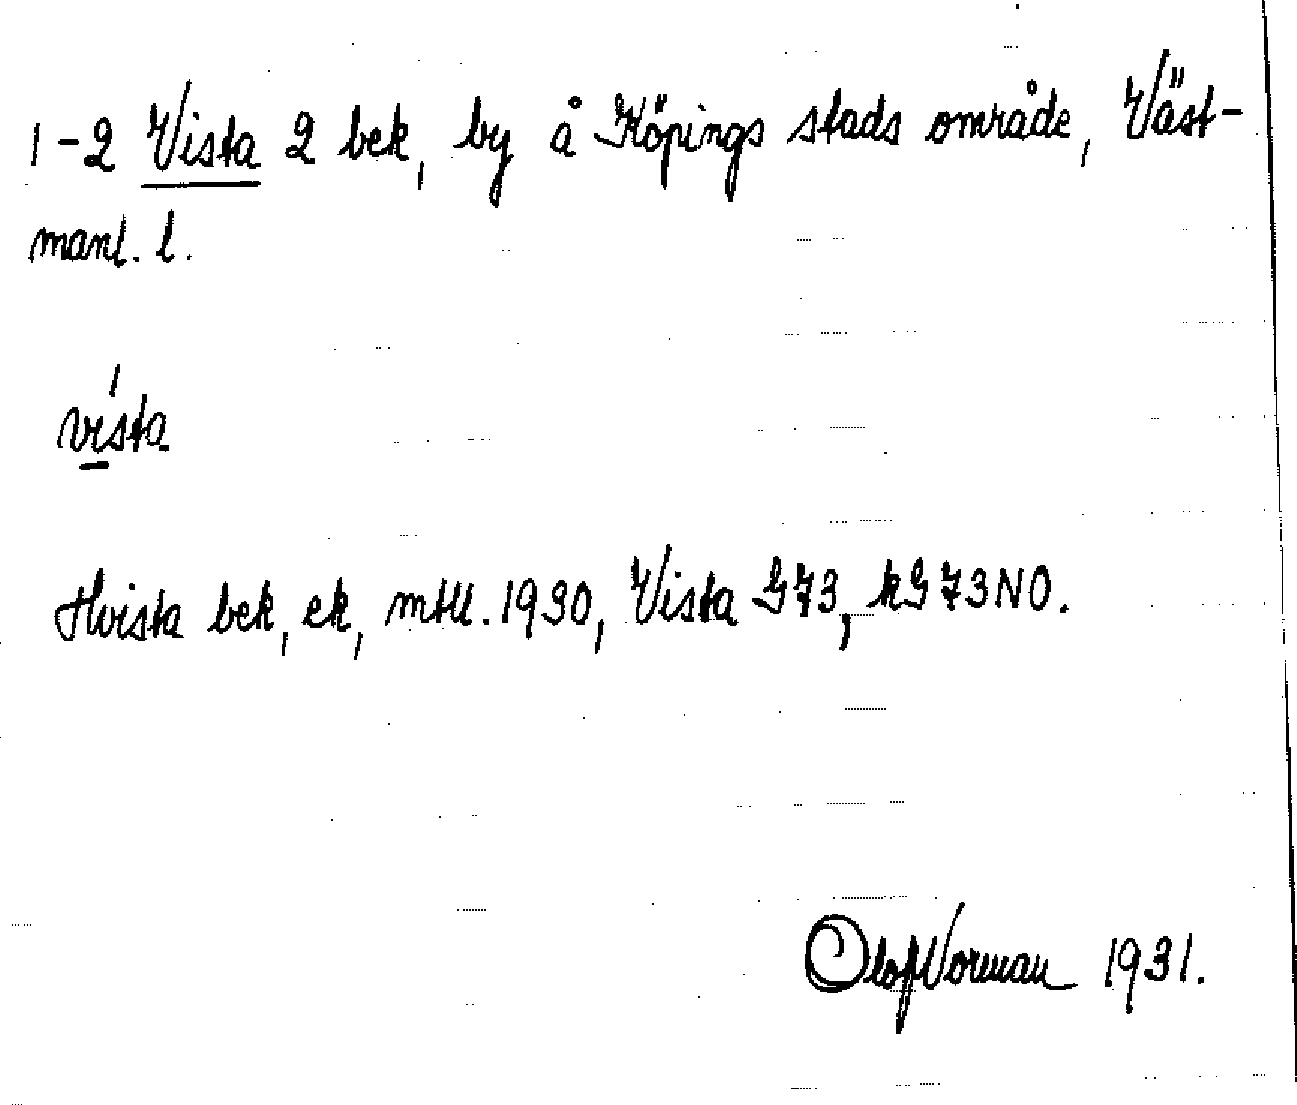 1-2 Vista 2 bek, by å Köpings stads område, Väst-
manl. l.
vísta
Hvista bek, ek, mtll. 1930, Vista G73, kG73NO.
Olof Norman 1931.